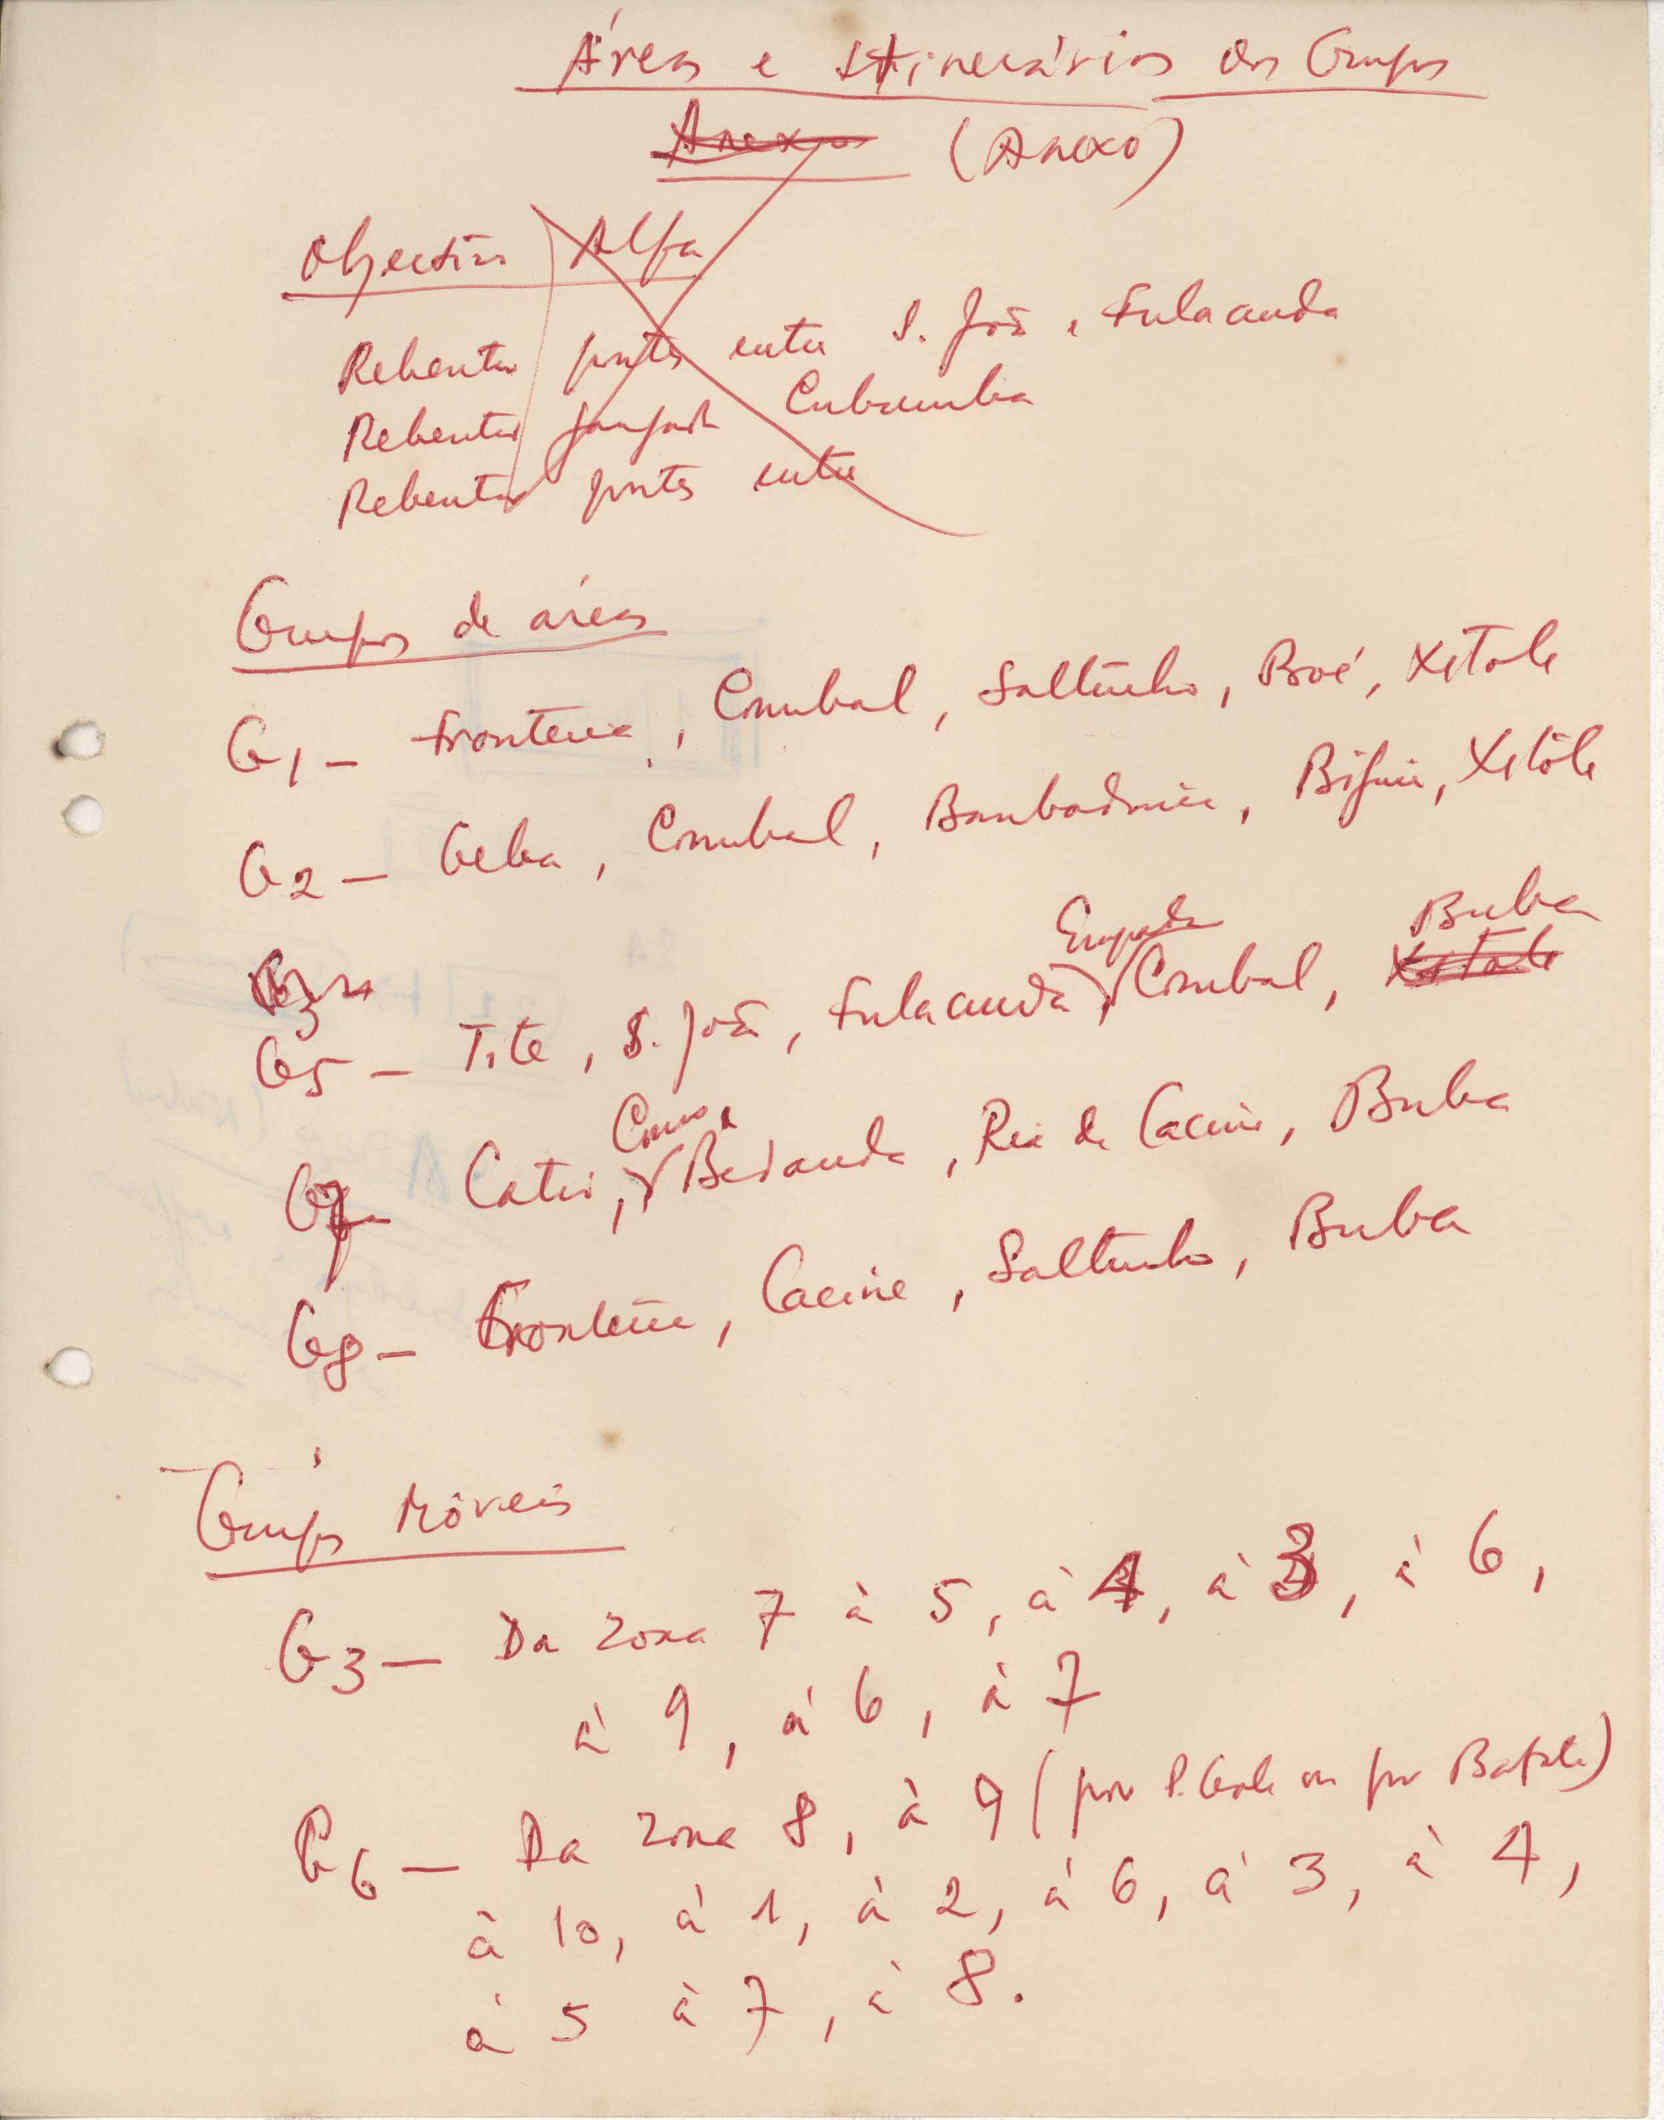 Áreas e Itinerários dos Grupos
Anexos (Anexo)
Objectivos Alfa
Rebentar pontes entre S. João e Fulacunda
Rebentar jangada Cubumba
Rebentar pontes entre
Grupos de áreas
G1 — Fronteira, Corubal, Saltinho, Boé, Xitole
G2 — Geba, Corubal, Bambadinca, Xitole
G3
Empada Buba
G5 — Tite, S. João, Fulacunda, Corubal, Xitole
Como e
G7 — Catió, Bedanda, Rio de Cacine, Buba
G8 — Fronteira, Cacine, Saltinho, Buba
Grupos Móveis
G3 — Da zona 7 à 5, à 4, à 3, à 6,
à 9, à 6, à 7
G6 — Da zona 8, à 9 (por ou por Bafatá)
à 10, à 1, à 2, à 6, à 3, à 4,
à 5 à 7, à 8.